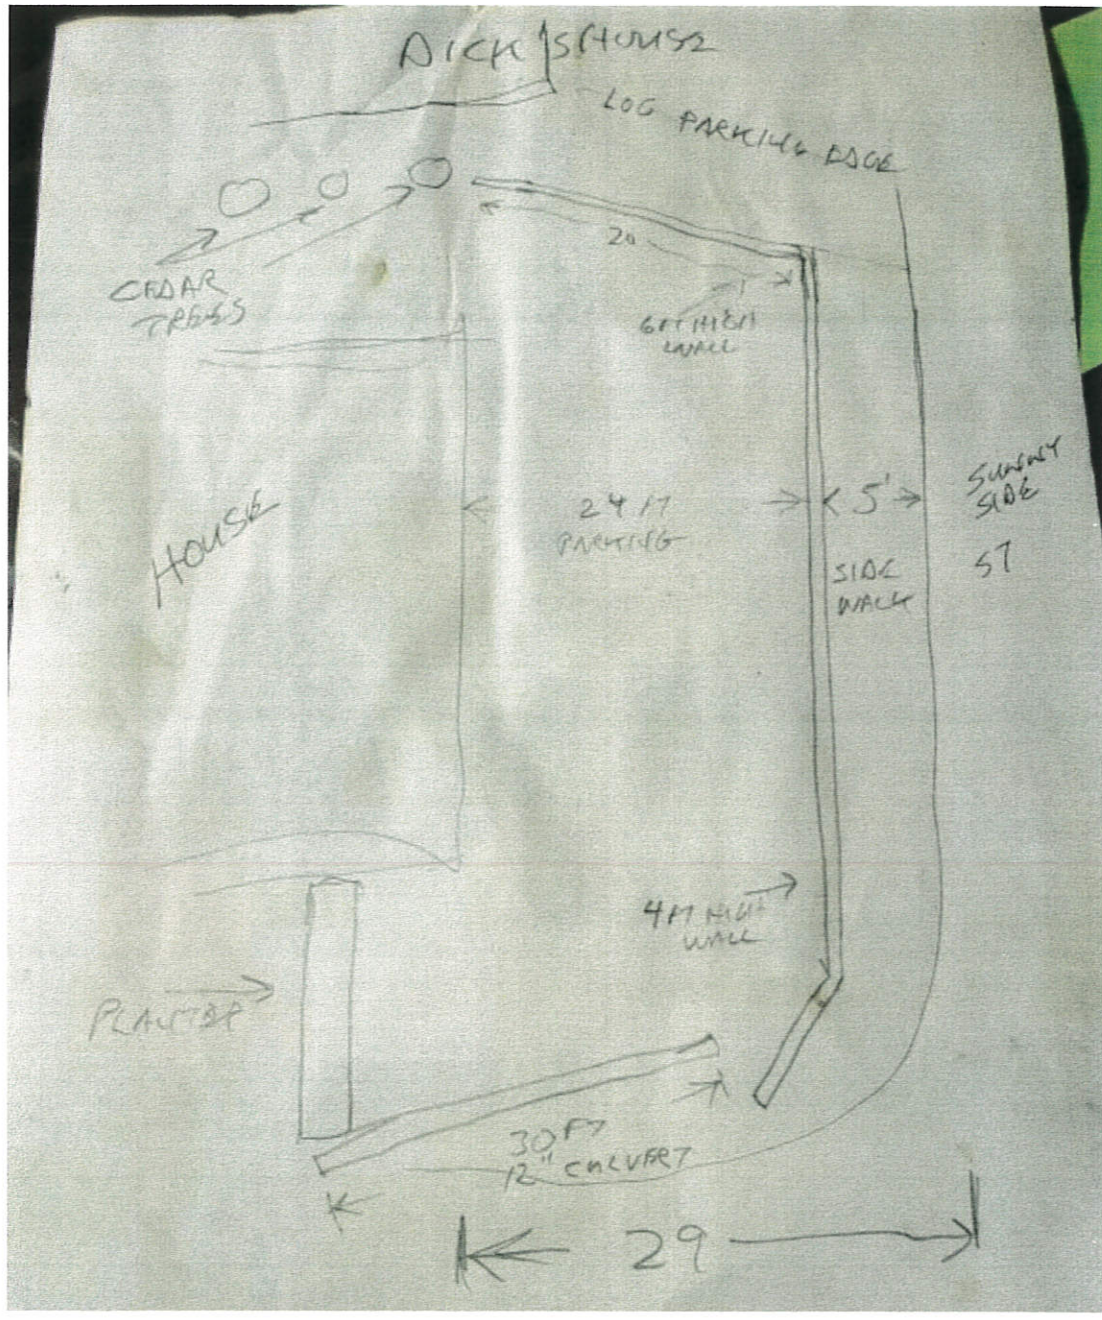 DICK'S HOUSE
LOG PARKING EDGE
20
CEDAR
TREES
6 FT HIGH
WALL
HOUSE
24 FT
PARKING
5'
SIDE
WALK
SUNNY
SIDE
ST
4 FT HIGH
WALL
PLANTER
30 FT
12" CULVERT
29